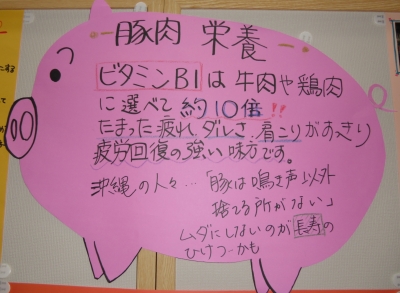 ー豚肉 栄養ー
ビタミンB1は牛肉や鶏肉
に選べて約10倍!!
たまった疲れ、ダルさ、肩こりがすっきり
疲労回復の強い味方です。
沖縄の人々…「豚は鳴き声以外
捨てる所がない」
ムダにしないのが長寿の
ひけつかも